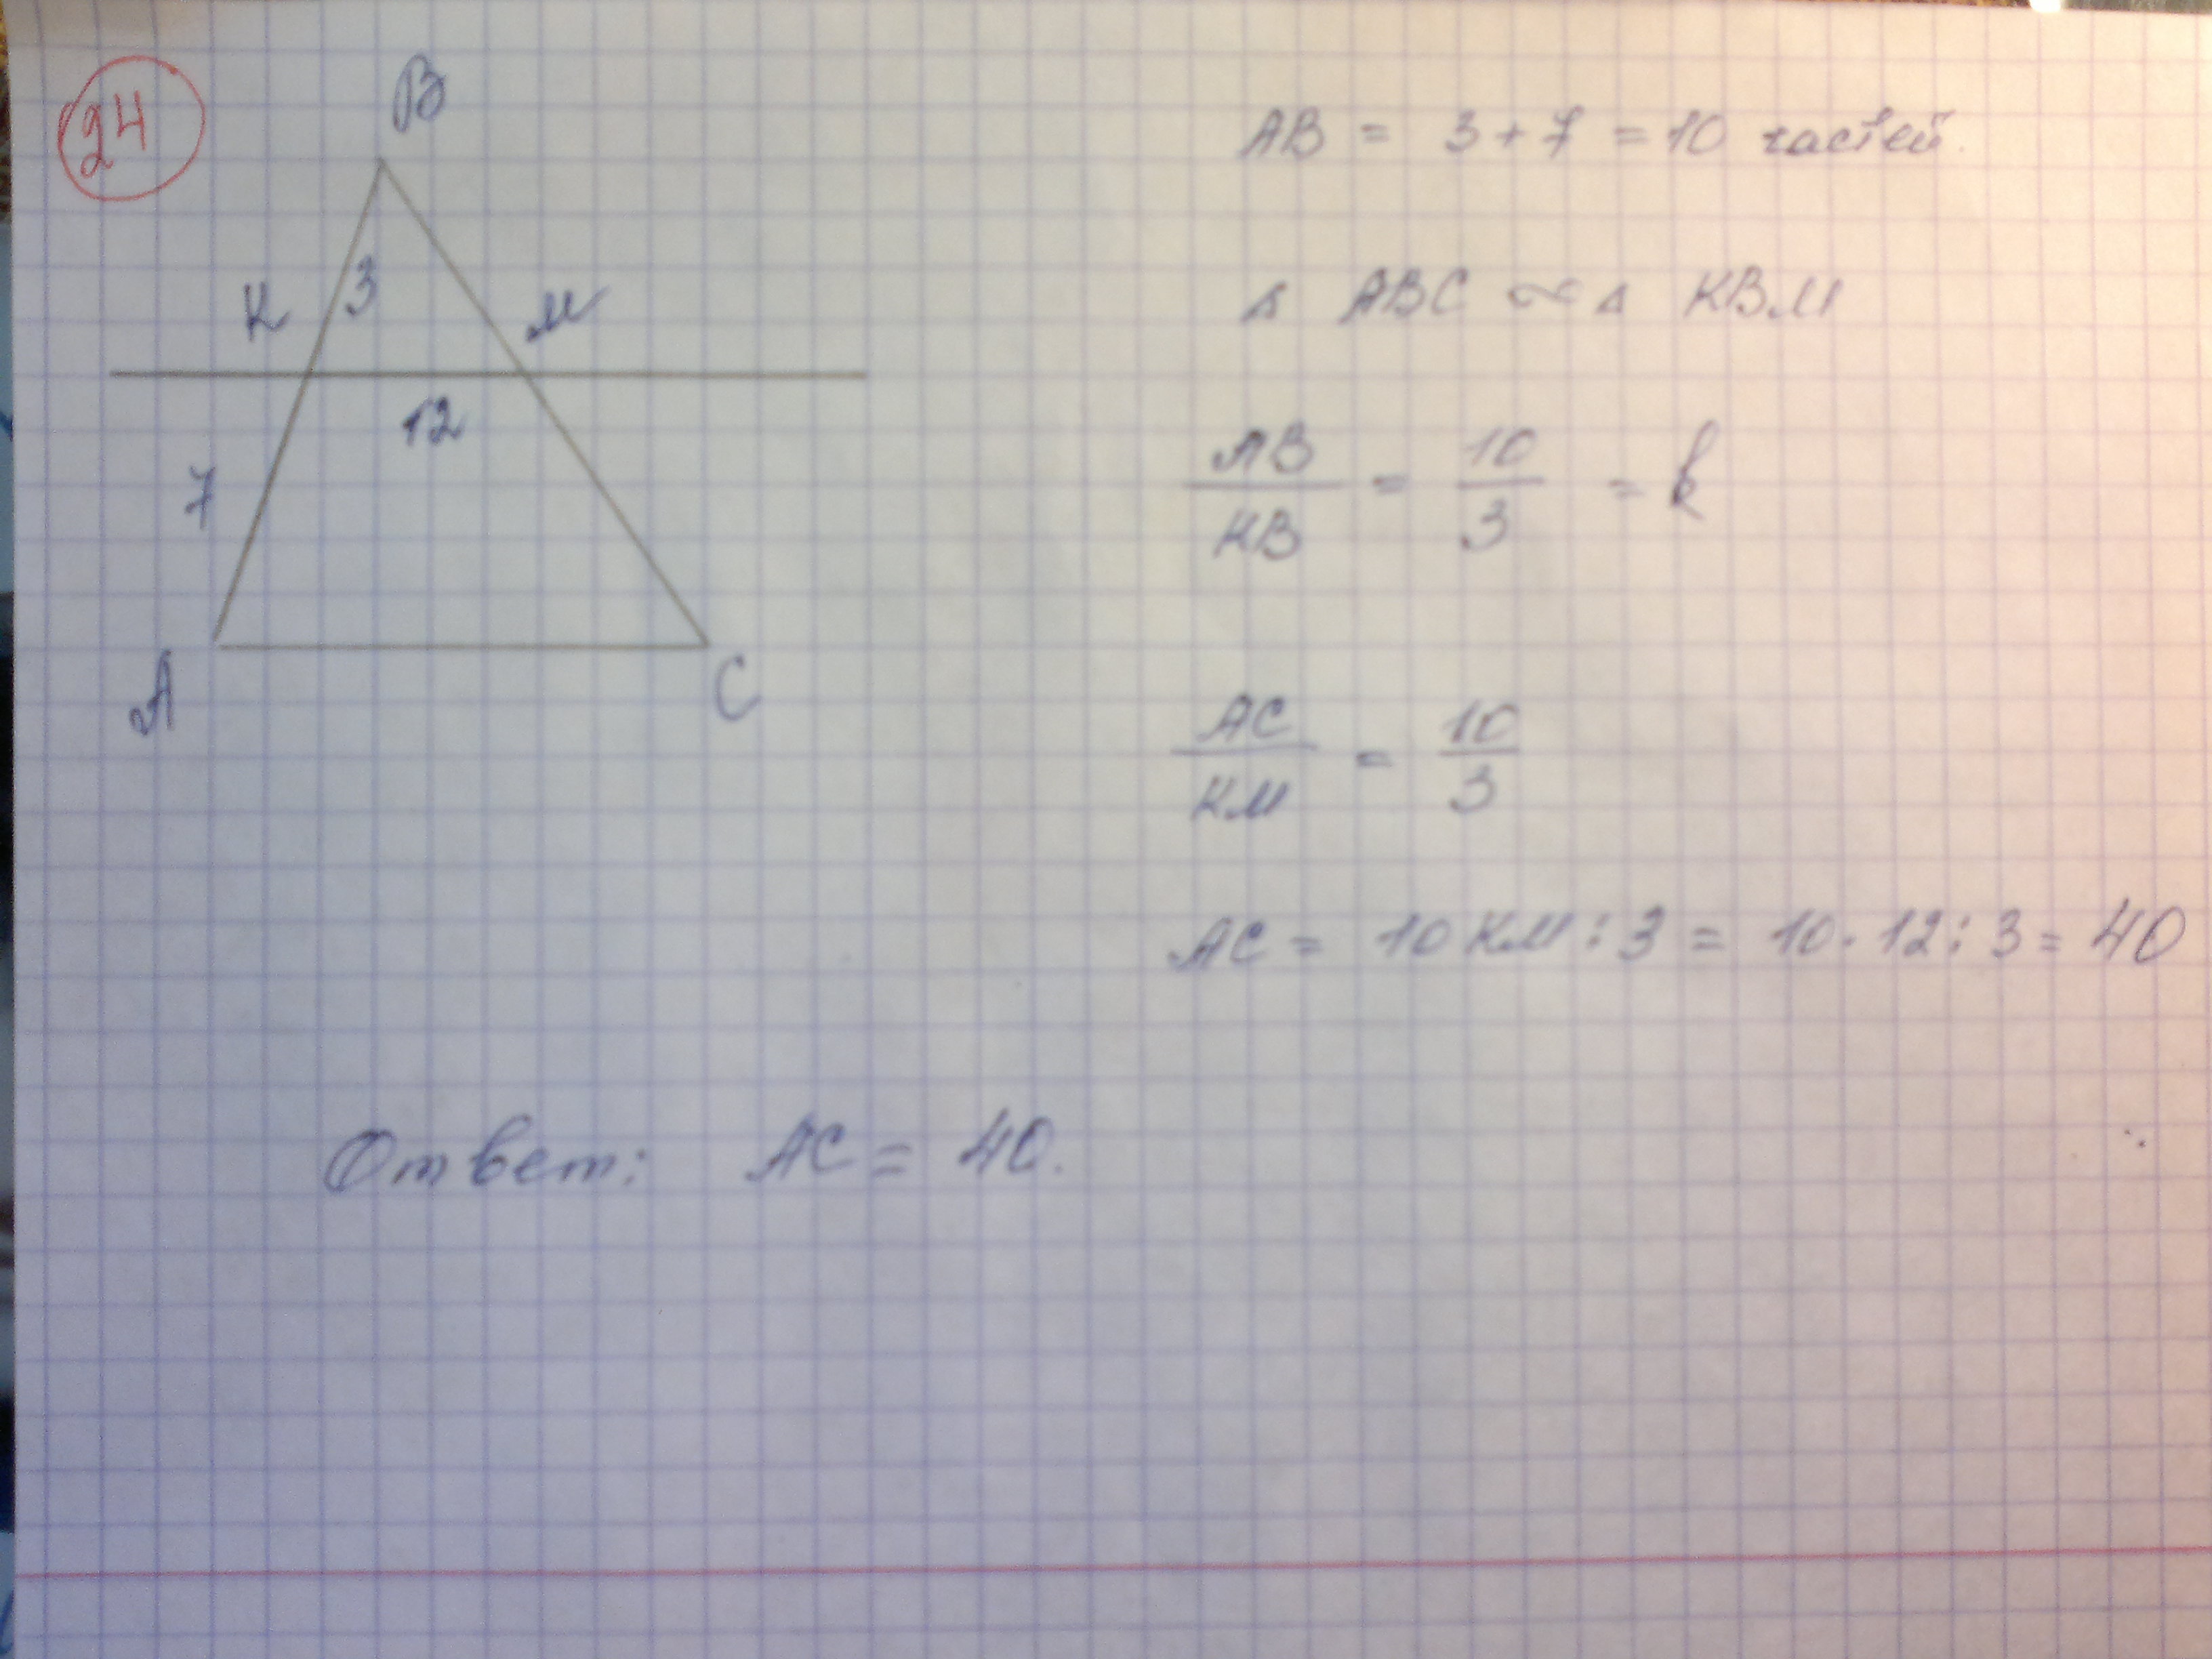 24
B
K 3 M
12
7
A C
AB = 3 + 7 = 10 частей.
Δ ABC ∾ Δ KBM
AB/KB = 10/3 = k
AC/KM = 10/3
AC = 10 KM : 3 = 10 · 12 : 3 = 40
Ответ: AC = 40.